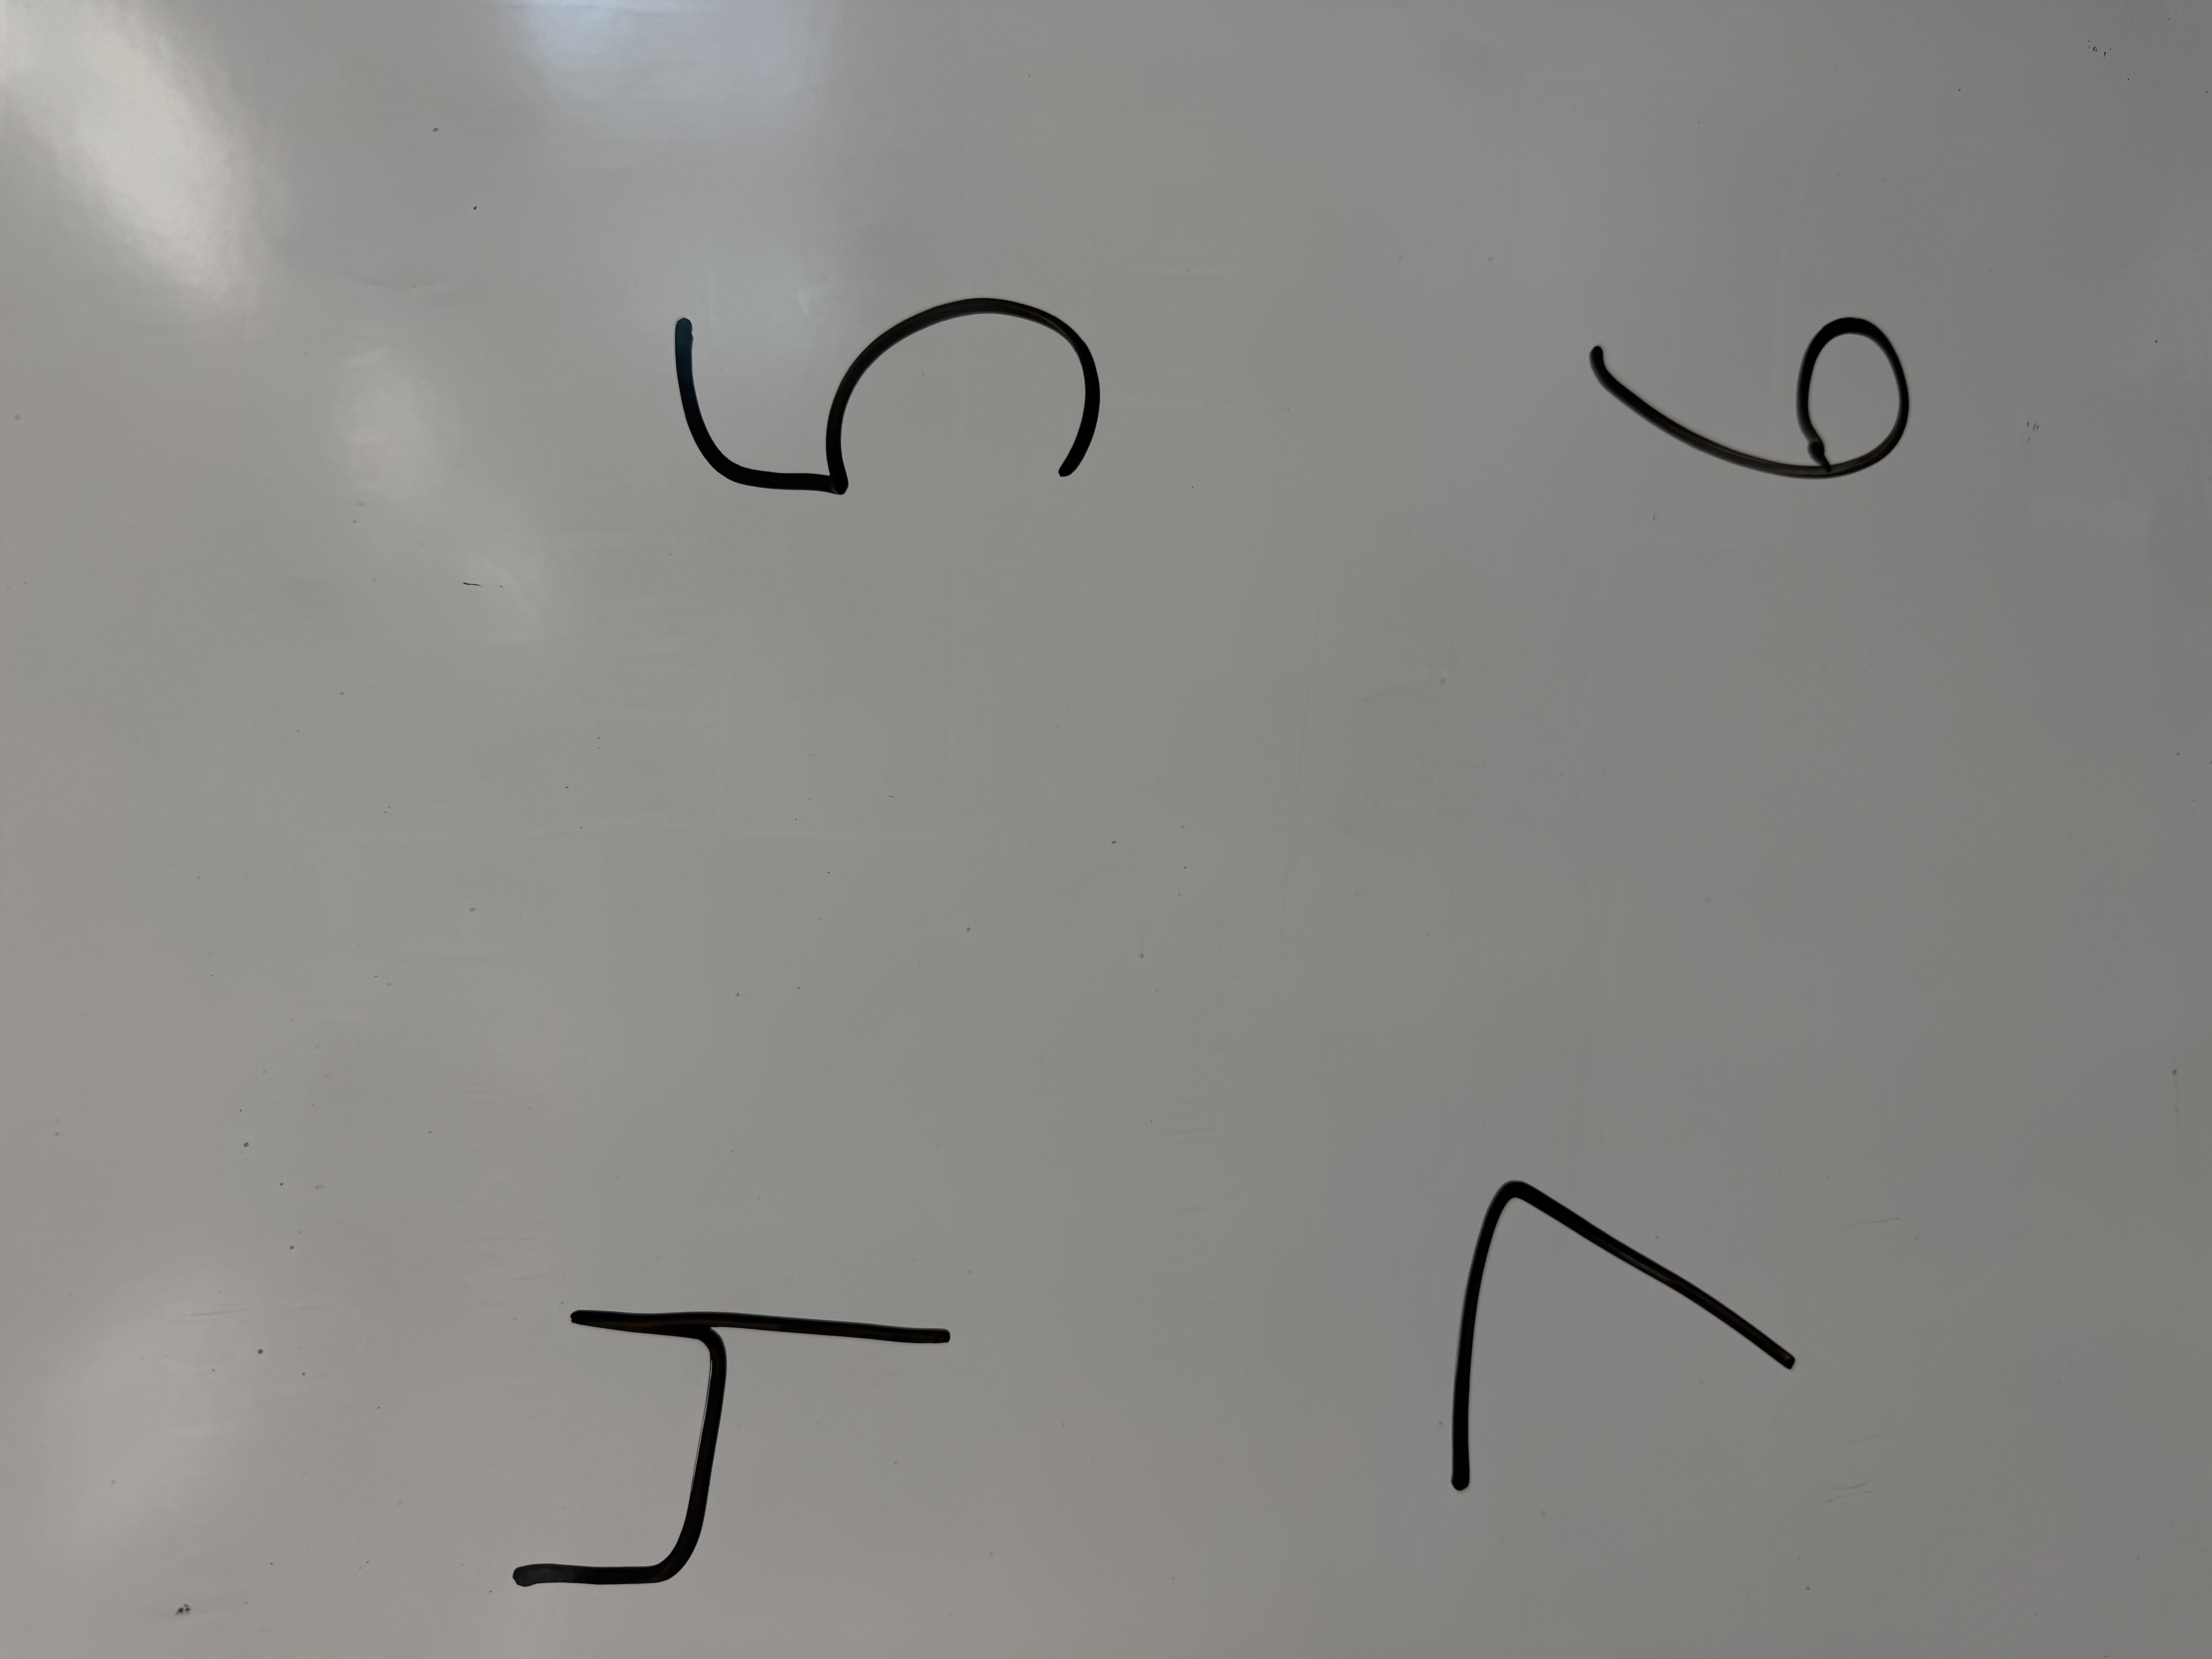 4 5
7 6